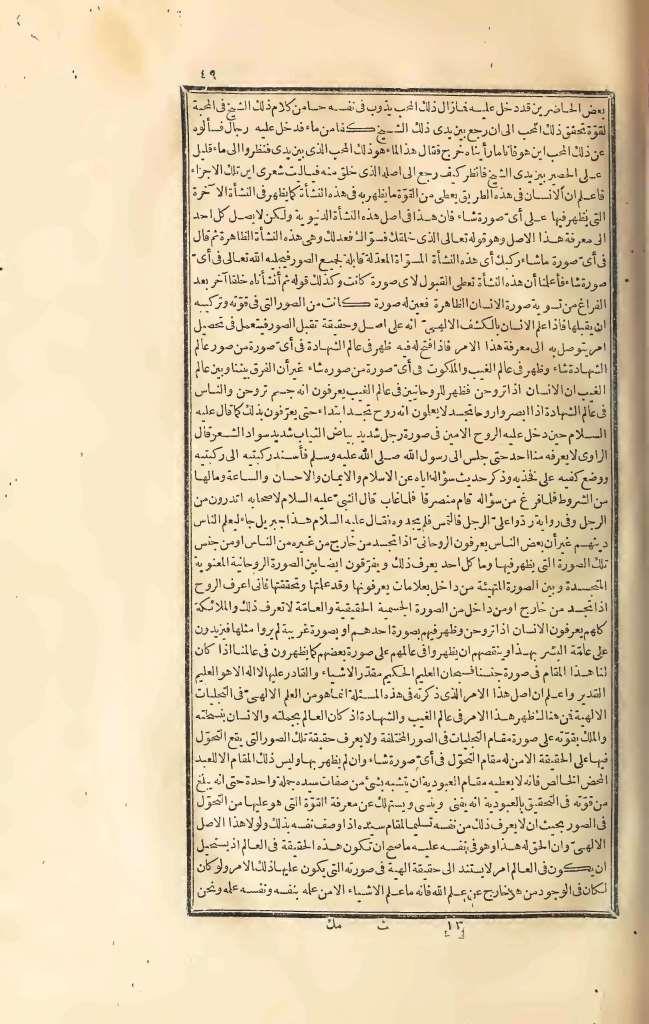 ٤٩
بعض الحاضرين قد دخل عليه فما زال ذلك المحب يذوب فى نفسه حسا من كلام ذلك الشيخ فى المحبة
لقوّة تحقق ذلك المحب الى ان رجع بين يدى ذلك الشيخ كفا من ماء فدخل عليه رجال فسألوه
عن ذلك المحب اين هو فانا ما رأيناه خرج فقال هذا الماء هو ذلك المحب الذى بين يدى فنظروا الى ماء قليل
على الحصير بين يدى الشيخ فانظر كيف رجع الى اصله الذى خلق منه فياليت شعرى اين تلك الاجزاء
فاعلم ان الانسان فى هذه الطريق يعطى من القوّة ما يظهر به فى هذه النشأة كما يظهر فى النشأة الآخرة
التى يظهر فيها على أىّ صورة شاء فان هذا فى اصل هذه النشأة الدنيوية ولكن لا يصل كل احد
الى معرفة هذا الاصل وهو قوله تعالى الذى خلقك فسوّاك فعدلك وهى هذه النشأة الظاهرة ثم قال
فى أىّ صورة ما شاء ركبك أى هذه النشأة المسوّاة المعدّلة قابلة لجميع الصور فيجليه الله تعالى فى أىّ
صورة شاء فأعلمنا أن هذه النشأة تعطى القبول لاى صورة كانت وكذلك قوله ثم أنشأناه خلقا آخر بعد
الفراغ من تسوية صورة الانسان الظاهرة فعين له صورة كانت من الصور التى فى قوّته وتركيبه
ان يقبلها فاذا علم الانسان بالكشف الالهىّ انه على اصل وحقيقة تقبل الصور فيتعمل فى تحصيل
امر يتوصل به الى معرفة هذا الامر فاذا فتح له فيه ظهر فى عالم الشهادة فى أىّ صورة من صور عالم
الشهادة شاء وظهر فى عالم الغيب والملكوت فى أىّ صورة من صوره شاء غير أن الفرق بيننا وبين عالم
الغيب ان الانسان اذا تروحن فظهر للروحانيين فى عالم الغيب يعرفون انه جسم تروحن والناس
فى عالم الشهادة اذا ابصروا روحا تجسد لا يعلمون انه روح تجسد ابتداء حتى يعرّفون بذلك كما قال عليه
السلام حين دخل عليه الروح الامين فى صورة رجل شديد بياض الثياب شديد سواد الشعر قال
الراوى لا يعرفه منا احد حتى جلس الى رسول الله صلى الله عليه وسلم فأسند ركبتيه الى ركبتيه
ووضع كفيه على فخذيه وذكر حديث سؤاله اياه عن الاسلام والايمان والاحسان والساعة وما لها
من الشروط فلما فرغ من سؤاله قام منصرفا فلما غاب قال النبىّ عليه السلام لاصحابه اتدرون من
الرجل وفى رواية ردّوا علىّ الرجل فالتمس فلم يجدوه فقال عليه السلام هذا جبريل جاء ليعلم الناس
دينهم غير أن بعض الناس يعرفون الروحانىّ اذا تجسد من خارج من غيره من الناس او من جنس
تلك الصورة التى يظهر فيها وما كل احد يعرف ذلك ويفرّقون ايضا بين الصورة الروحانية المعنوية
المتجسدة وبين الصورة المتهيئة من داخل بعلامات يعرفونها وقد علمتها وتحققتها فانى اعرف الروح
اذا تجسد من خارج او من داخل من الصورة الجسمية الحقيقية والعامّة لا تعرف ذلك والملائكة
كلهم يعرفون الانسان اذا تروحن وظهر فيهم بصورة احدهم او بصورة غريبة لم يروا مثلها فيزيدون
على عامّة البشر بهذا وينقصهم ان يظهروا فى عالمهم على صورة بعضهم كما يظهرون فى عالمنا اذا كان
لنا هذا المقام فى صورة جنسنا فسبحان العليم الحكيم مقدّر الاشياء والقادر عليها لا اله الا هو العليم
القدير واعلم ان اصل هذا الامر الذى ذكرته فى هذه المسئلة انما هو من العلم الالهىّ فى التجليات
الالهية فمن هنالك ظهر هذا الامر فى عالم الغيب والشهادة اذ كان العالم بجملته والانسان بنسخته
والملك بقوّته على صورة مقام التجليات فى الصور المختلفة ولا يعرف حقيقة تلك الصور التى يقع التحوّل
فيها على الحقيقة الامن له مقام التحوّل فى أىّ صورة شاء وان لم يظهر بها وليس ذلك المقام الا للعبد
المحض الخالص فانه لا يعطيه مقام العبودية أن يتشبه بشئ من صفات سيده جملة واحدة حتى انه يبلغ
من قوّته فى التحقيق بالعبودية انه يفنى وينسى ويستهلك عن معرفة القوّة التى هو عليها من التحوّل
فى الصور بحيث ان لا يعرف ذلك من نفسه تسليما لمقام سيده اذ اوصف نفسه بذلك ولولا هذا الاصل
الالهىّ وان الحق له هذا وهو فى نفسه عليه ما صح ان تكون هذه الحقيقة فى العالم اذ يستحيل
ان يكون فى العالم امر لا يستند الى حقيقة الهية فى صورته التى يكون عليها ذلك الامر ولو كان
لكان فى الوجود من هو خارج عن علم الله فانه ما علم الاشياء الامن علمه بنفسه ونفسه علمه ونحن
١٣ ث مك